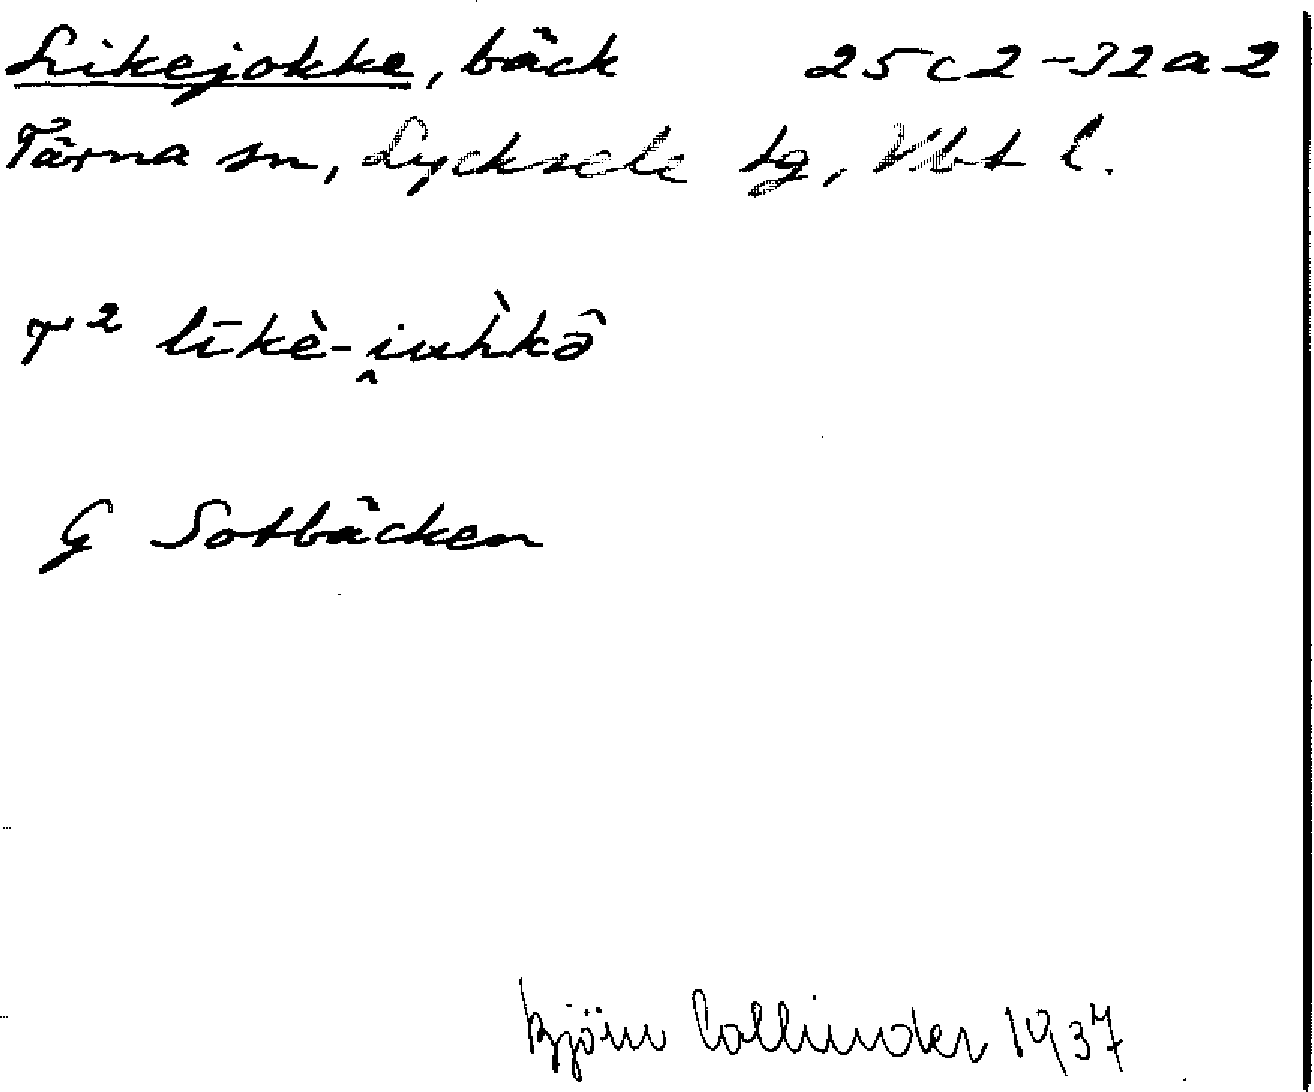 Likejokke, bäck 25c2-32a2
Tärna sn, Lycksele tg, Vbt l.
T² līkè-i̯uh̀kə̂
G Sotbäcken
Björn Collinder 1937